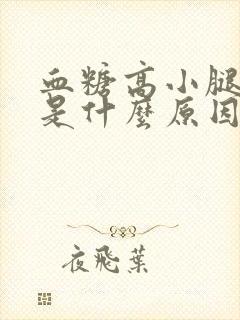 血糖高小腿
是什麼原因
夜飛葉